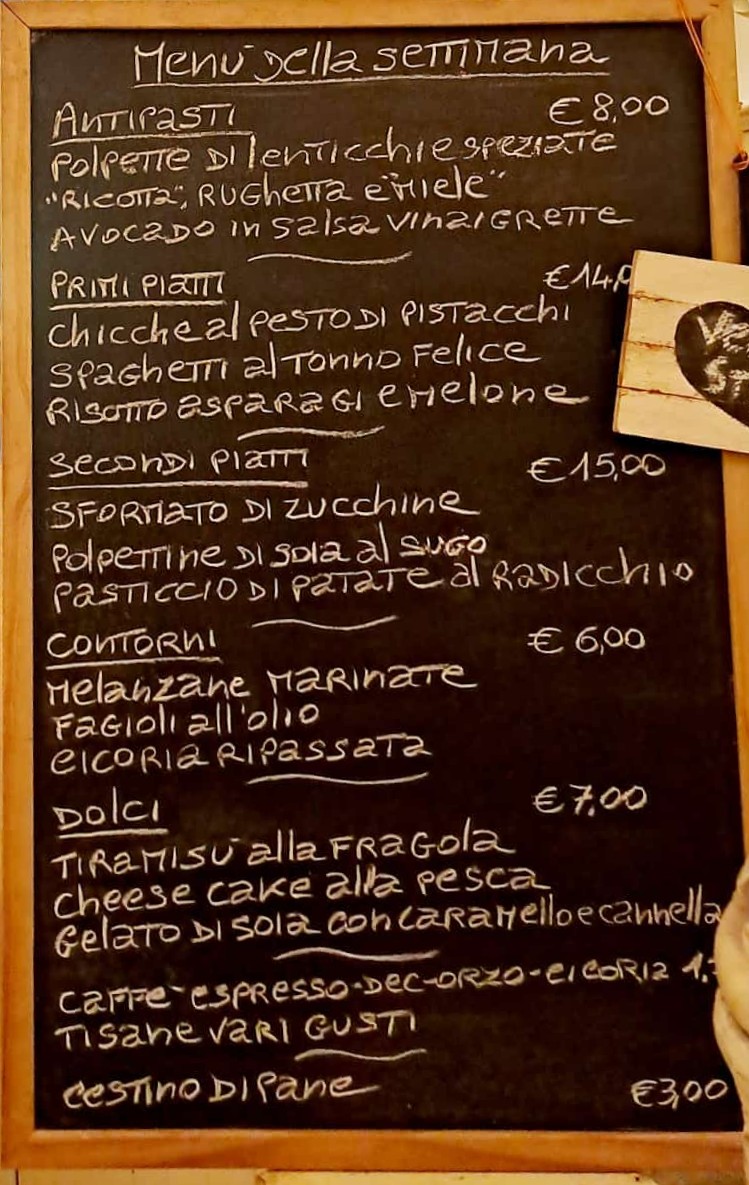 Menù della settimana
Antipasti € 8,00
Polpette di lenticchie speziate
"Ricotta", Rughetta e "Miele"
Avocado in salsa vinaigrette
Primi piatti € 14,
Chicche al pesto di pistacchi
Spaghetti al Tonno Felice
Risotto asparagi e melone
Secondi piatti € 15,00
Sformato di zucchine
Polpettine di soia al sugo
Pasticcio di patate al radicchio
Contorni € 6,00
Melanzane marinate
Fagioli all'olio
Cicoria ripassata
Dolci € 7,00
Tiramisù alla fragola
Cheese cake alla pesca
Gelato di soia con caramello e cannella
Caffè espresso-dec-orzo-cicoria 1,
Tisane vari gusti
Cestino di pane €3,00